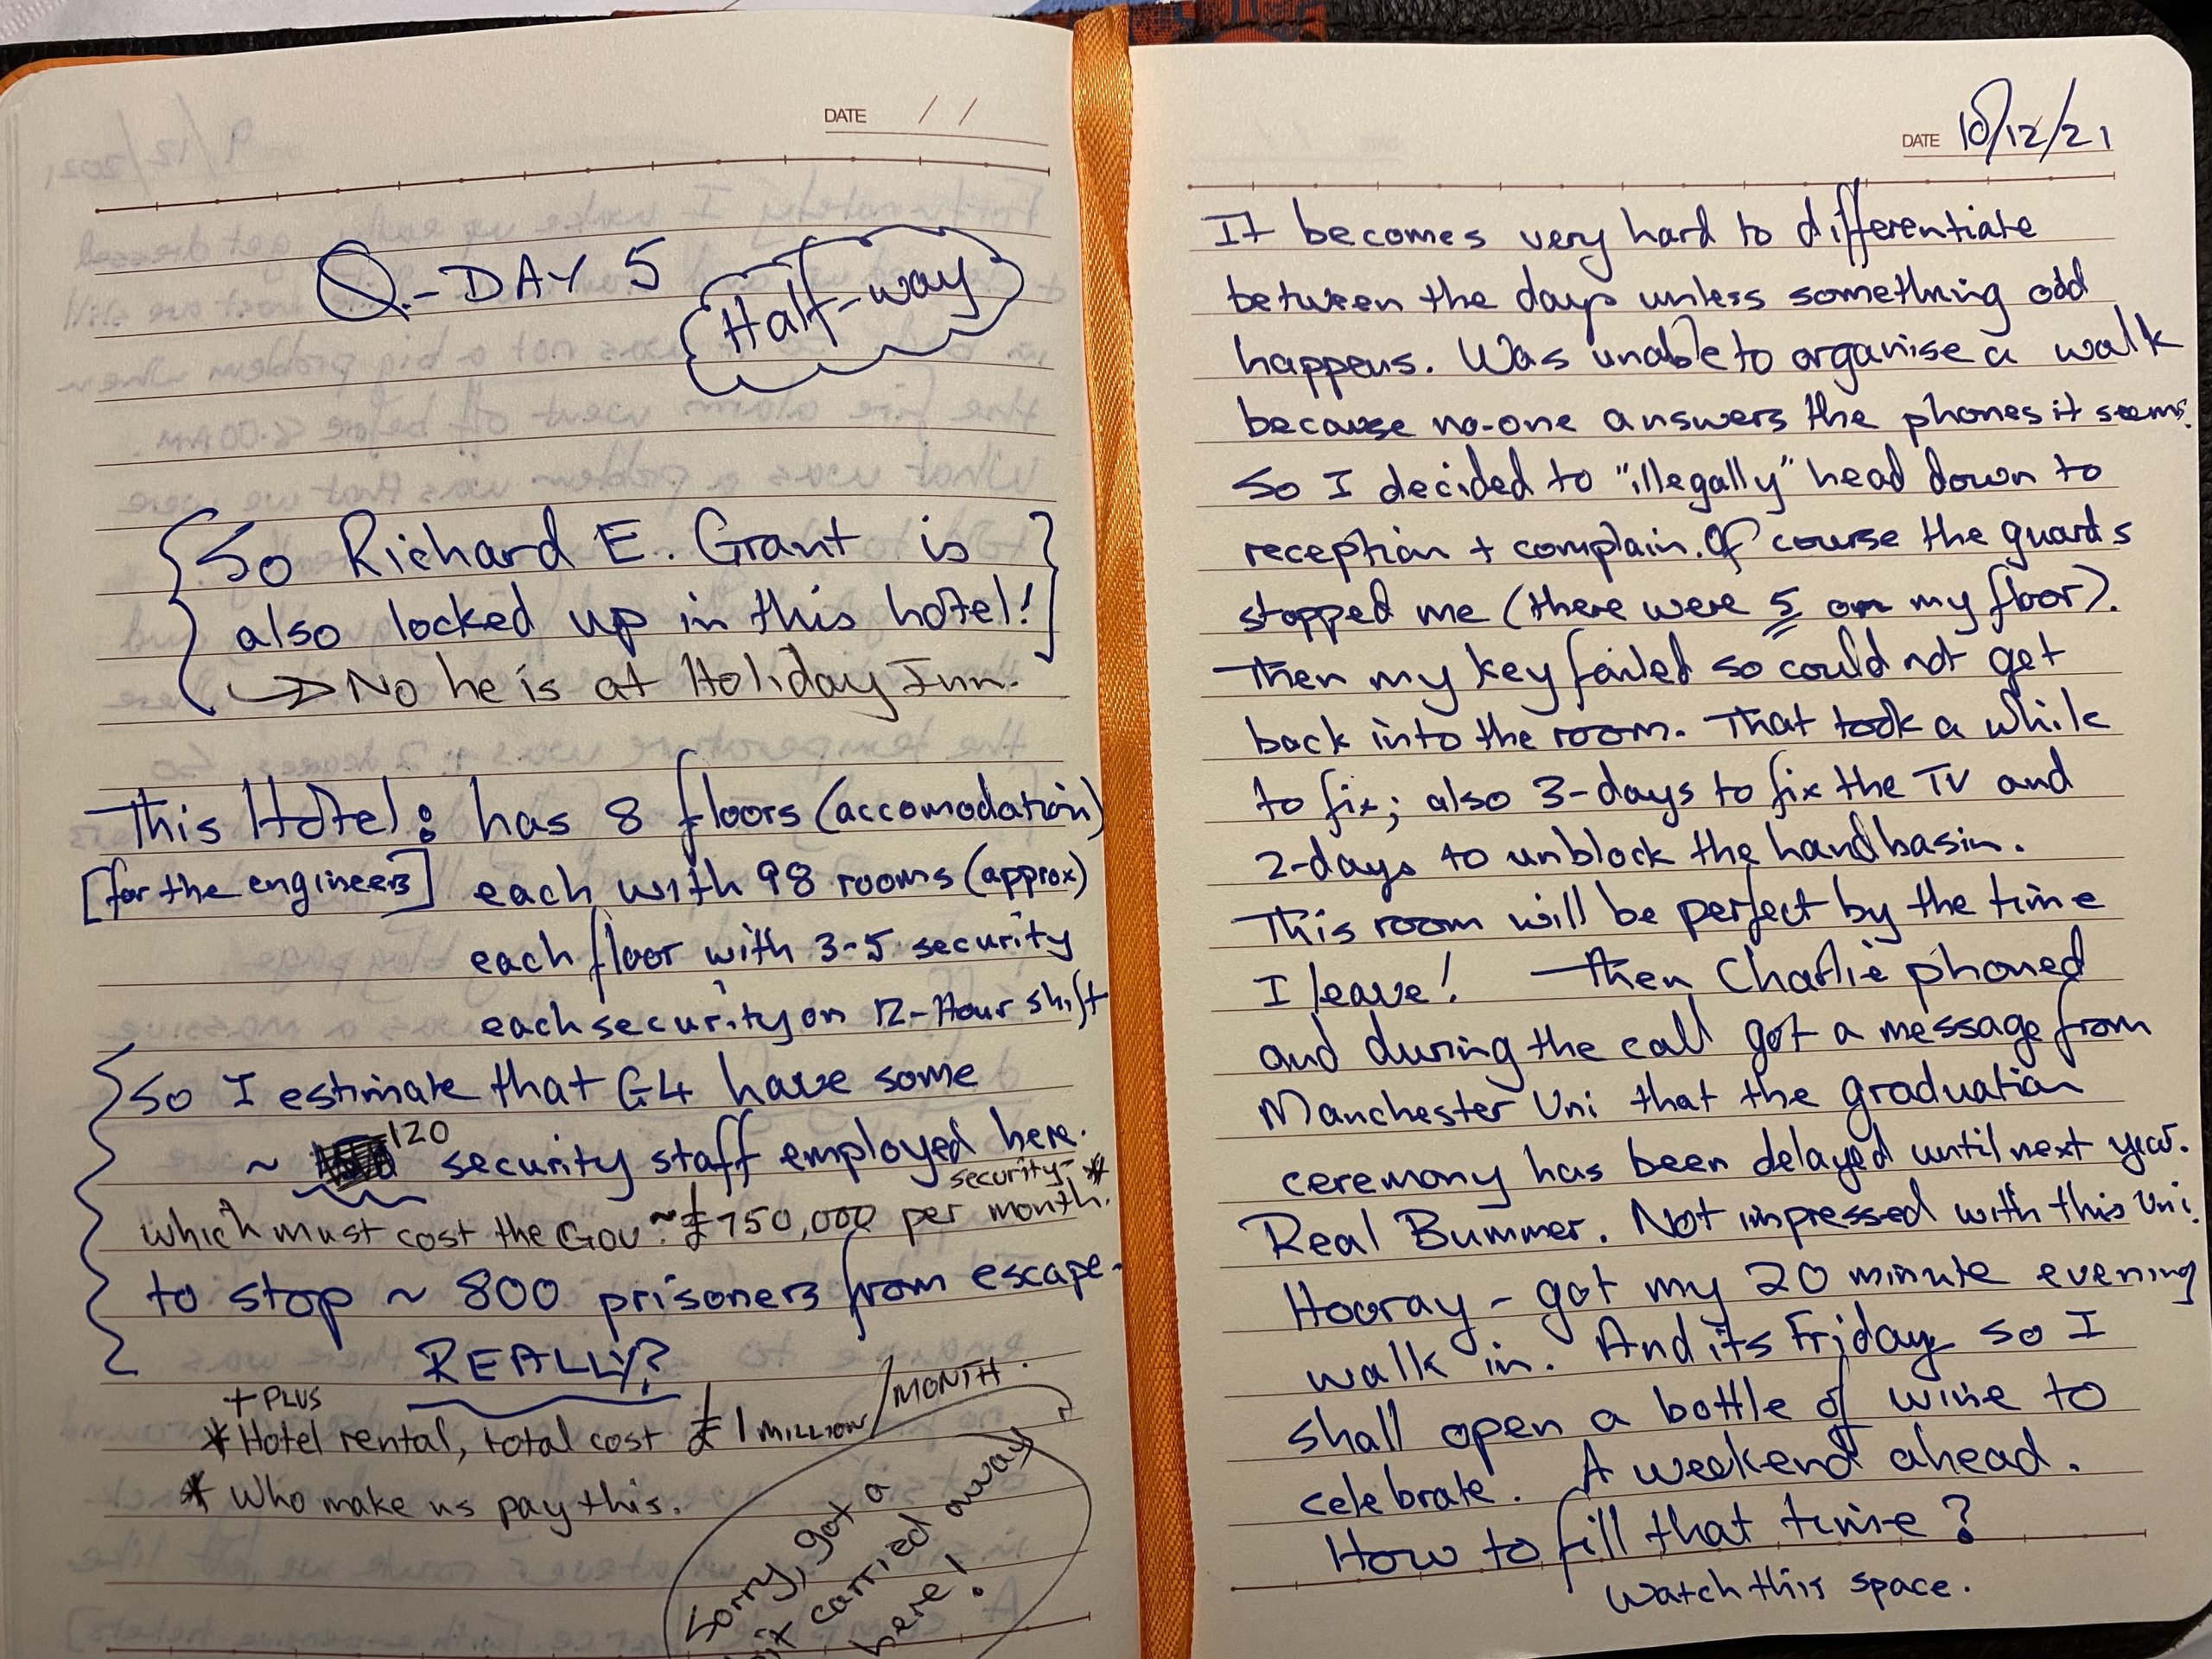 DATE / /
Q.- DAY 5
Half-way
So Richard E. Grant is
also locked up in this hotel!
→ No he is at Holiday Inn.
This Hotel: has 8 floors (accomodation)
[for the engineers] each with 98 rooms (approx)
each floor with 3-5 security
each security on 12-Hour shift
So I estimate that G4 have some
~ 120 security staff employed here.
security *
which must cost the Gov. ~£750,000 per month.
to stop ~ 800 prisoners from escape-
REALLY?
+ PLUS
* Hotel rental, total cost £1 MILLION/MONTH.
* Who make us pay this.
Sorry, got a
carried away
here!
DATE 10/12/21
It becomes very hard to differentiate
between the days unless something odd
happens. Was unable to organise a walk
because no-one answers the phones it seems.
So I decided to "illegally" head down to
reception + complain. Of course the guards
stopped me (there were 5 on my floor).
Then my key failed so could not get
back into the room. That took a while
to fix; also 3-days to fix the TV and
2-days to unblock the handbasin.
This room will be perfect by the time
I leave! Then Charlie phoned
and during the call got a message from
Manchester Uni that the graduation
ceremony has been delayed until next year.
Real Bummer. Not impressed with this Uni.
Hooray - got my 20 minute evening
walk in. And its Friday so I
shall open a bottle of wine to
celebrate. A weekend ahead.
How to fill that time?
Watch this space.